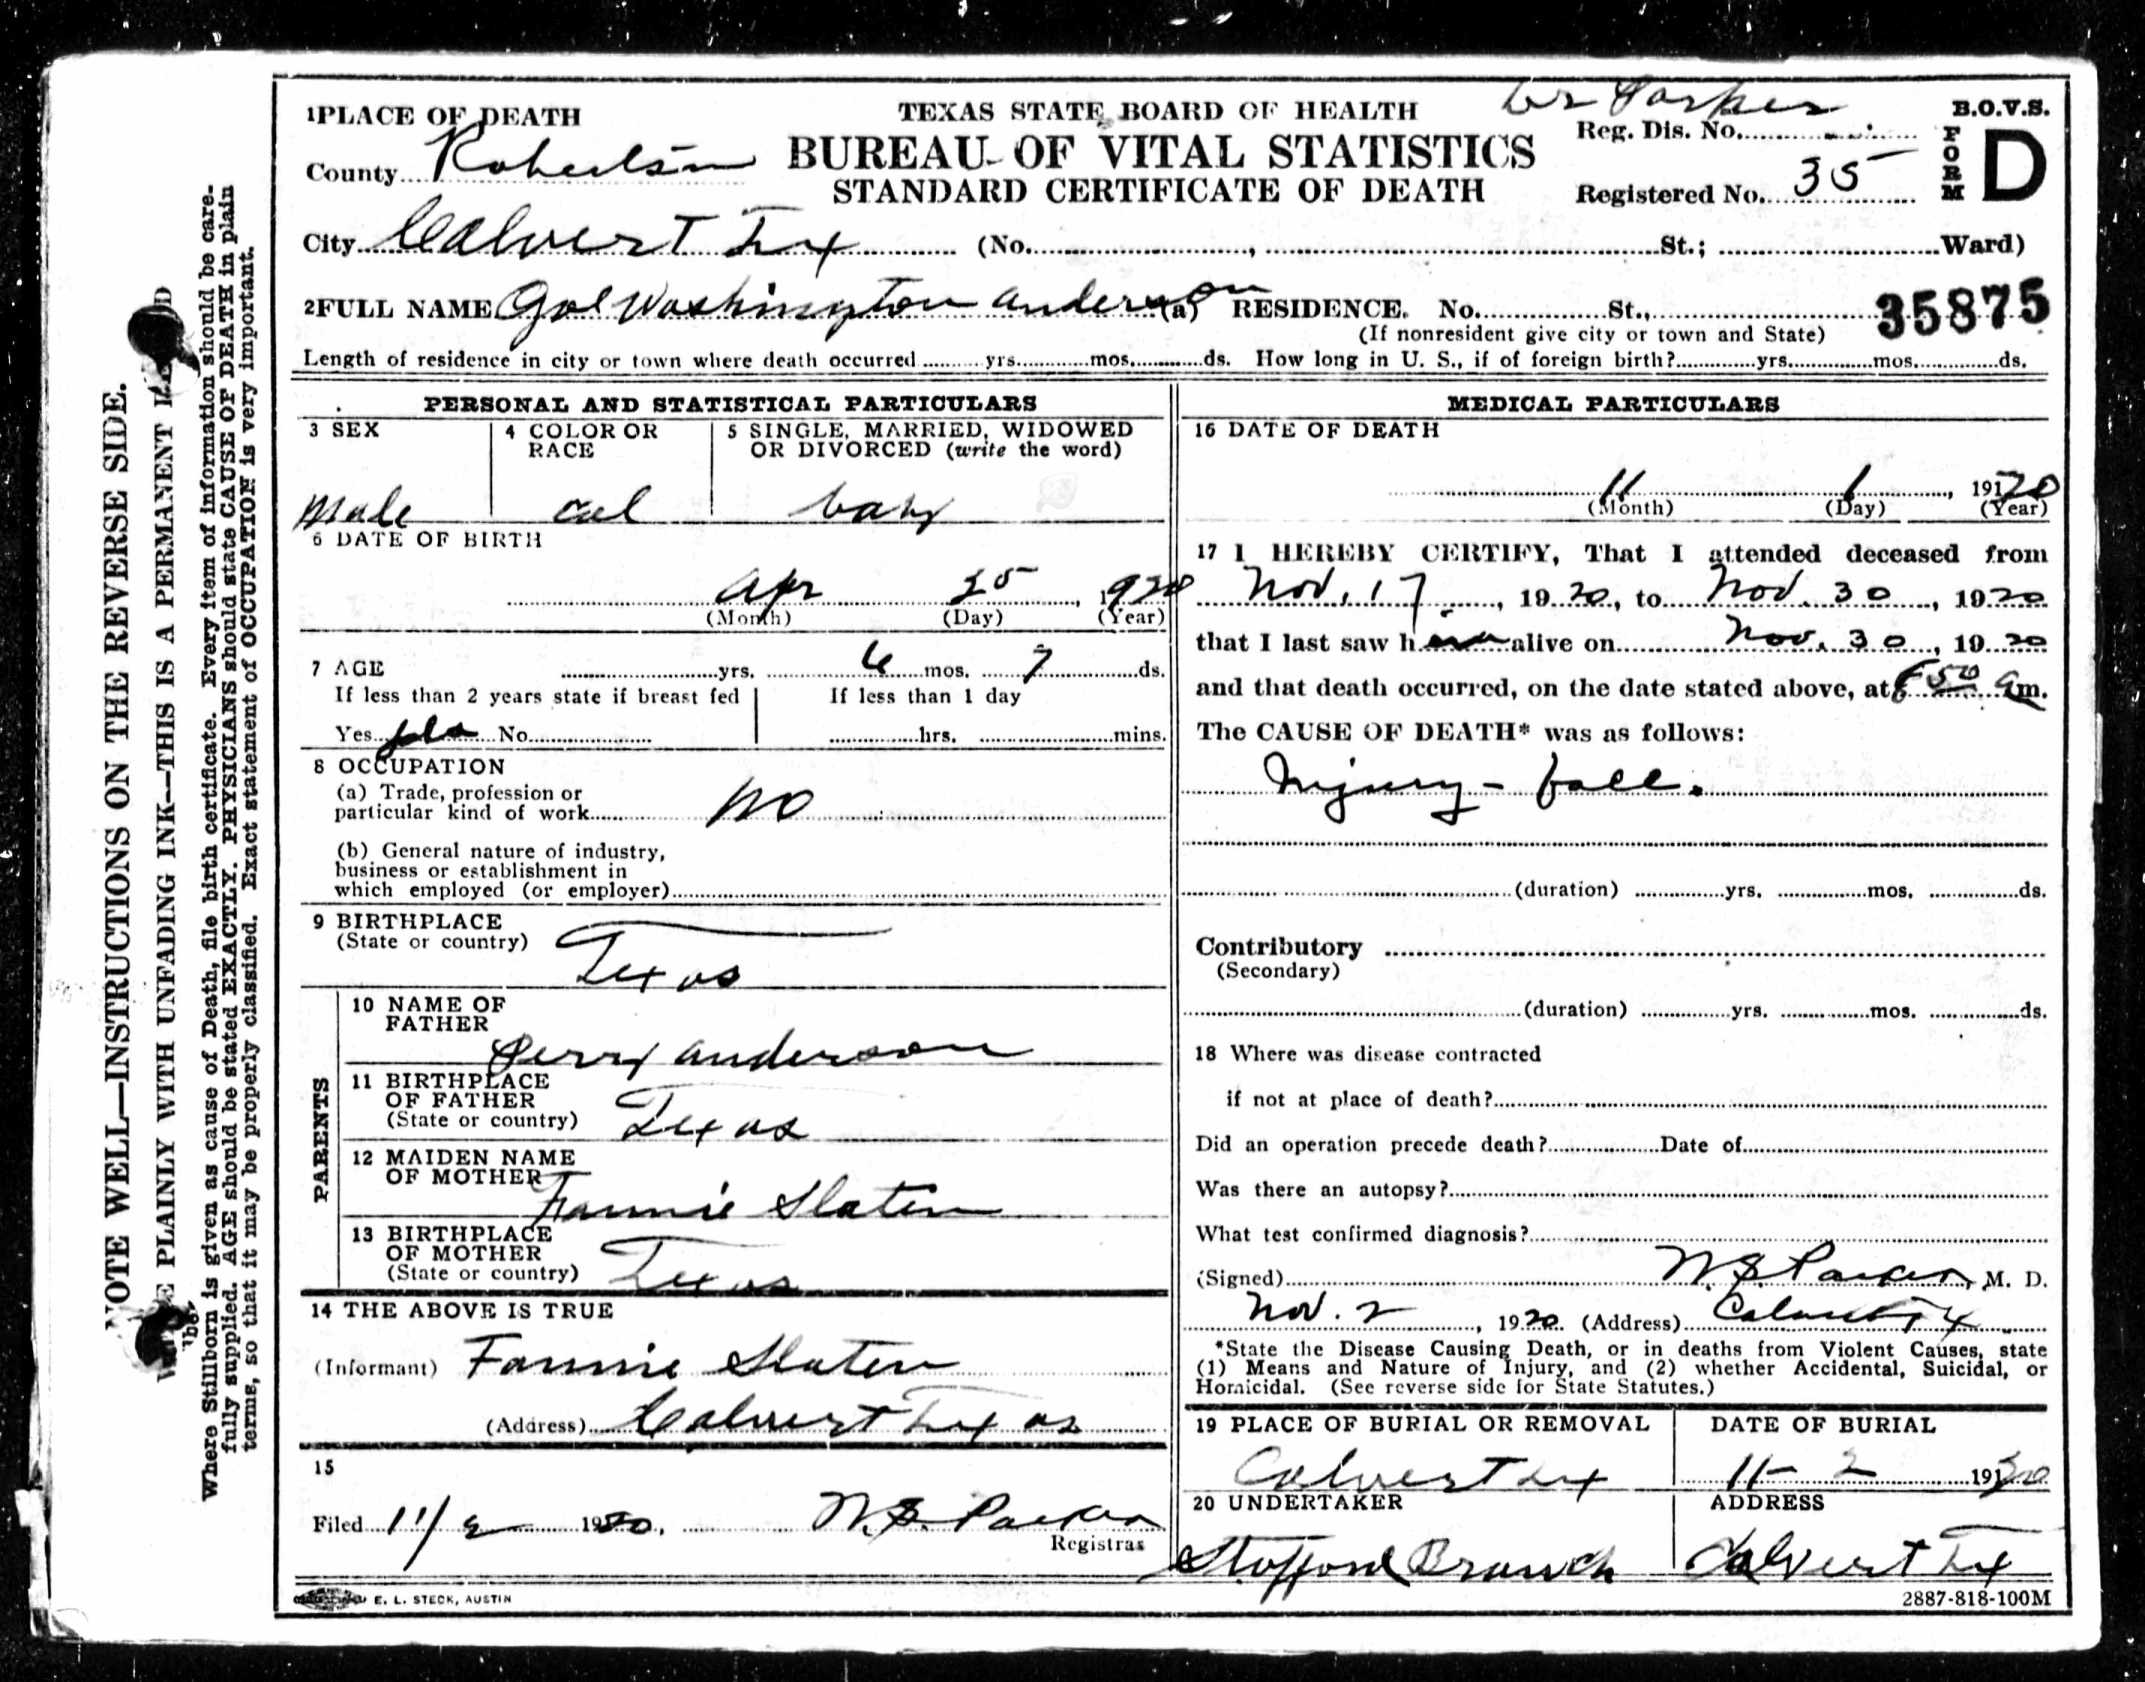 1 PLACE OF DEATH
TEXAS STATE BOARD OF HEALTH
Dr Parker
B.O.V.S.
County Robertson
BUREAU OF VITAL STATISTICS
Reg. Dis. No.
FORM D
STANDARD CERTIFICATE OF DEATH
Registered No. 35
City Calvert Tex (No. , St.; Ward)
2 FULL NAME Washington Anderson (a) RESIDENCE. No. St.,
35875
(If nonresident give city or town and State)
Length of residence in city or town where death occurred yrs. mos. ds. How long in U. S., if of foreign birth? yrs. mos. ds.
PERSONAL AND STATISTICAL PARTICULARS
3 SEX
4 COLOR OR RACE
5 SINGLE, MARRIED, WIDOWED
OR DIVORCED (write the word)
Male
Col
baby
6 DATE OF BIRTH
Apr 25, 1920
(Month) (Day) (Year)
7 AGE yrs. 6 mos. 7 ds.
If less than 2 years state if breast fed
If less than 1 day
Yes No
hrs. mins.
8 OCCUPATION
(a) Trade, profession or
particular kind of work no
(b) General nature of industry,
business or establishment in
which employed (or employer)
9 BIRTHPLACE
(State or country)
Texas
PARENTS
10 NAME OF
FATHER
Perry Anderson
11 BIRTHPLACE
OF FATHER
(State or country) Texas
12 MAIDEN NAME
OF MOTHER
Fannie Slaten
13 BIRTHPLACE
OF MOTHER
(State or country) Texas
14 THE ABOVE IS TRUE
(Informant) Fannie Slaten
(Address) Calvert Texas
15
Filed 11/2 1920, W.S. Parker
Registrar
E. L. STECK, AUSTIN
MEDICAL PARTICULARS
16 DATE OF DEATH
11 1, 1920
(Month) (Day) (Year)
17 I HEREBY CERTIFY, That I attended deceased from
Nov. 17, 1920, to Nov. 30, 1920
that I last saw him alive on Nov. 30, 1920
and that death occurred, on the date stated above, at 50 am.
The CAUSE OF DEATH* was as follows:
Injury - fall.
(duration) yrs. mos. ds.
Contributory
(Secondary)
(duration) yrs. mos. ds.
18 Where was disease contracted
if not at place of death?
Did an operation precede death? Date of
Was there an autopsy?
What test confirmed diagnosis?
(Signed) W.S. Parker, M. D.
Nov. 2, 1920 (Address) Calvert Tx
*State the Disease Causing Death, or in deaths from Violent Causes, state
(1) Means and Nature of Injury, and (2) whether Accidental, Suicidal, or
Homicidal. (See reverse side for State Statutes.)
19 PLACE OF BURIAL OR REMOVAL
DATE OF BURIAL
Calvert Tex
11- 2 1920
20 UNDERTAKER
ADDRESS
Stafford Branch
Calvert Tex
2887-818-100M
NOTE WELL—INSTRUCTIONS ON THE REVERSE SIDE.
PLAINLY WITH UNFADING INK—THIS IS A PERMANENT
Where Stillborn is given as cause of Death, file birth certificate. Every item of information should be care-
fully supplied. AGE should be stated EXACTLY. PHYSICIANS should state CAUSE OF DEATH in plain
terms, so that it may be properly classified. Exact statement of OCCUPATION is very important.